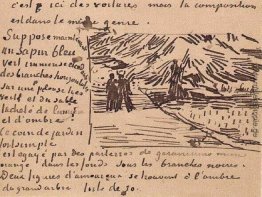 c'est ici des voilures mais la composition
est dans le même genre.
Suppose maintenant
un sapin bleu
vert immense étendant
des branches horizontales
sur une pelouse très
verte et du sable
tacheté de lumière
et d'ombre.
Le coin de jardin
fort simple
est égayé par des parterres de géraniums mine
orange dans les fonds sous les branches noires.
Deux figures d'amoureux se trouvent à l'ombre
du grand arbre toile de 30.